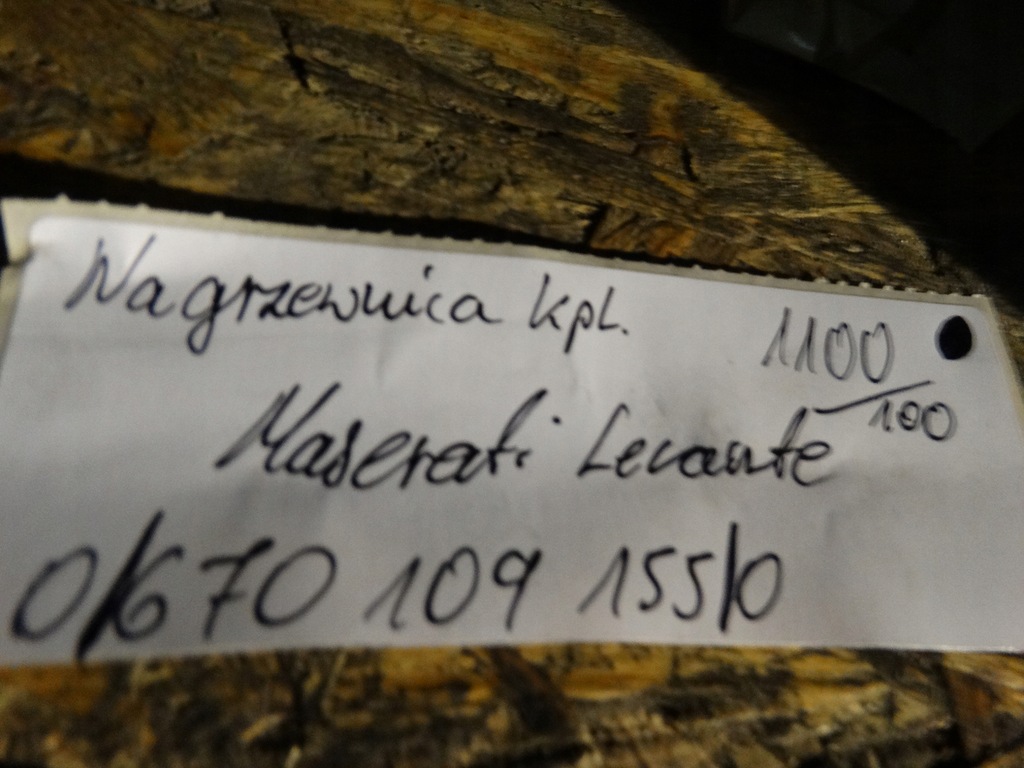 Nagrzewnica kpl. 1100/100
Maserati Levante
0/670 109 155/0